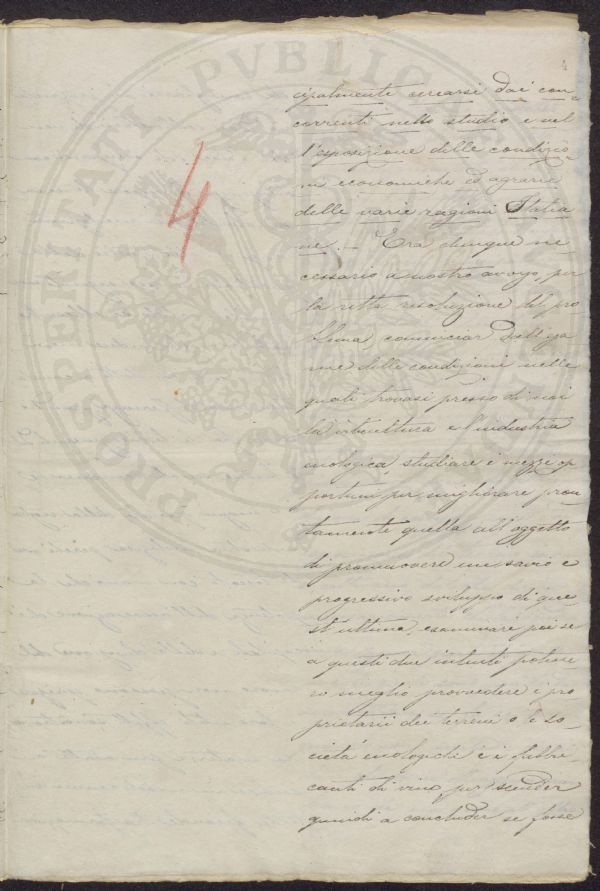 4
cipalmente cercarsi dai con-
correnti nello studio e nel
l'esposizione delle condizio-
ni economiche ed agrarie
delle varie regioni Italia
ne. – Era dunque ne-
cessario a nostro avviso, per
la retta risoluzione del pro
blema, cominciar dall'esa
me delle condizioni nelle
quali trovasi presso di noi
la viticultura e l'industria
enologica, studiare i mezzi op
portuni per migliorare pron
tamente quella all'oggetto
di promuovere un savio e
progressivo sviluppo di que
st'ultima, esaminare poi se
a questi due intenti potesse
ro meglio provvedere i pro
prietarii dei terreni o le so-
cietà enologiche e i fabbri-
canti di vino, per scender
quindi a concluder se fosse
PROSPERITATI PVBLICAE